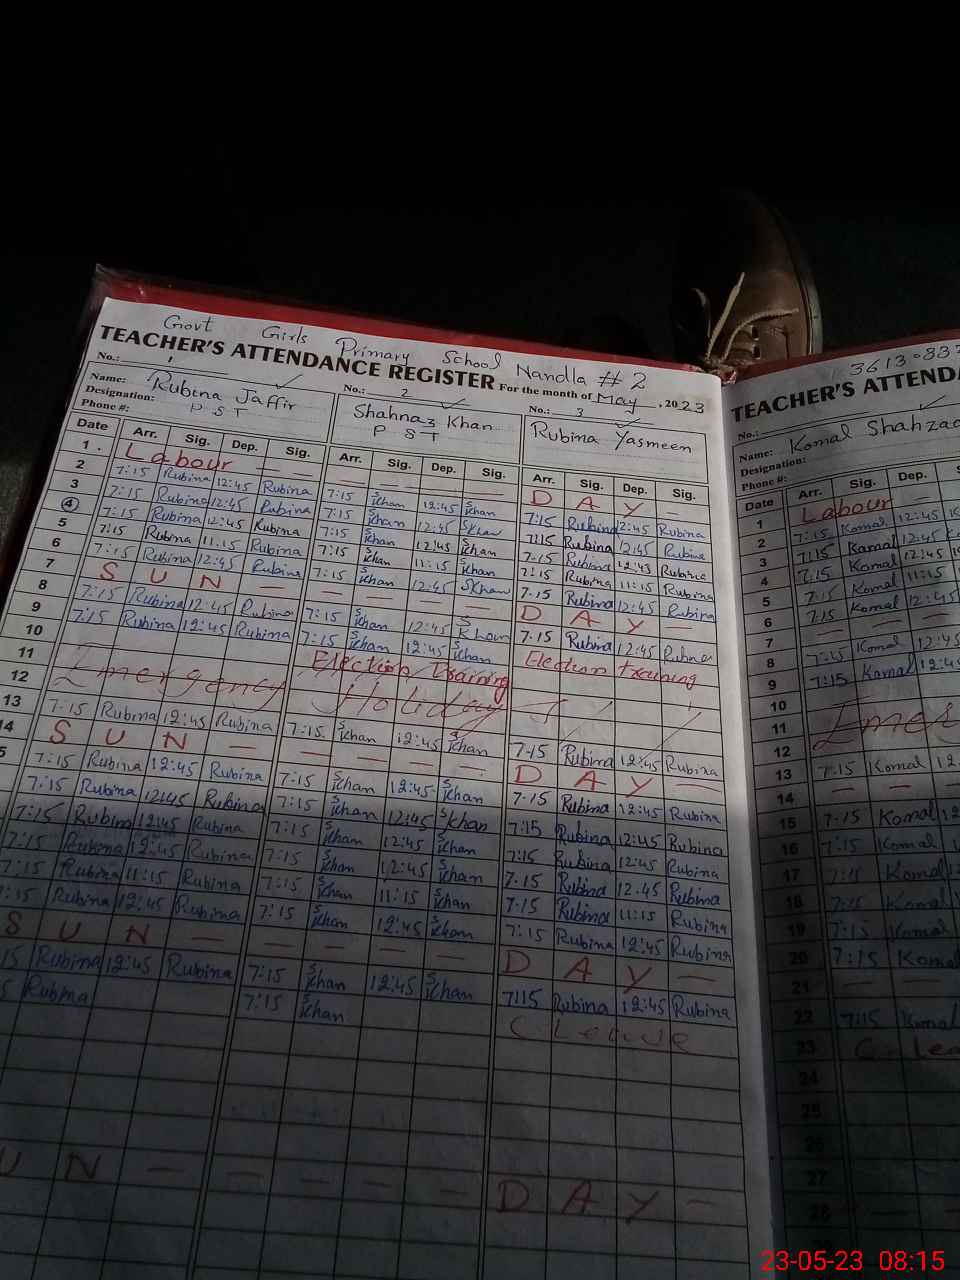 Govt Girls Primary School Nandla # 2
TEACHER'S ATTENDANCE REGISTER For the month of May, 2023
No.: 1 No.: 2 No.: 3
Name: Rubina Jaffir Shahnaz Khan Rubina Yasmeen
Designation: P S T P S T
Phone #:
Date Arr. Sig. Dep. Sig. Arr. Sig. Dep. Sig. Arr. Sig. Dep. Sig.
1 Labour — — — — D A Y —
2 7:15 Rubina 12:45 Rubina 7:15 S Khan 12:45 S Khan 7:15 Rubina 12:45 Rubina
3 7:15 Rubina 12:45 Rubina 7:15 S Khan 12:45 S Khan 7:15 Rubina 12:45 Rubina
4 7:15 Rubina 12:45 Rubina 7:15 S Khan 12:45 S Khan 7:15 Rubina 12:45 Rubina
5 7:15 Rubina 11:15 Rubina 7:15 S Khan 11:15 S Khan 7:15 Rubina 11:15 Rubina
6 7:15 Rubina 12:45 Rubina 7:15 S Khan 12:45 S Khan 7:15 Rubina 12:45 Rubina
7 S U N — — — — — D A Y —
8 7:15 Rubina 12:45 Rubina 7:15 S Khan 12:45 S Khan 7:15 Rubina 12:45 Rubina
9 7:15 Rubina 12:45 Rubina 7:15 S Khan 12:45 S Khan Election training
10 Election Training
11 Emergency Holiday
12
13 7:15 Rubina 12:45 Rubina 7:15 S Khan 12:45 S Khan 7:15 Rubina 12:45 Rubina
14 S U N — — — — — D A Y —
5 7:15 Rubina 12:45 Rubina 7:15 S Khan 12:45 S Khan 7:15 Rubina 12:45 Rubina
7:15 Rubina 12:45 Rubina 7:15 S Khan 12:45 S Khan 7:15 Rubina 12:45 Rubina
7:15 Rubina 12:45 Rubina 7:15 S Khan 12:45 S Khan 7:15 Rubina 12:45 Rubina
7:15 Rubina 12:45 Rubina 7:15 S Khan 12:45 S Khan 7:15 Rubina 12:45 Rubina
7:15 Rubina 11:15 Rubina 7:15 S Khan 11:15 S Khan 7:15 Rubina 11:15 Rubina
:15 Rubina 12:45 Rubina 7:15 S Khan 12:45 S Khan 7:15 Rubina 12:45 Rubina
S U N — — — — — D A Y —
15 Rubina 12:45 Rubina 7:15 S Khan 12:45 S Khan 7:15 Rubina 12:45 Rubina
5 Rubina 7:15 S Khan C Leave
U N — — — — — D A Y —
TEACHER'S ATTENDA
No.:
Name: Komal Shahzad
Designation:
Phone #:
Date Arr. Sig. Dep.
1 Labour
2 7:15 Komal 12:45
3 7:15 Komal 12:45
4 7:15 Komal 12:45
5 7:15 Komal 11:15
6 7:15 Komal 12:45
7 — —
8 7:15 Komal 12:45
9 7:15 Komal 12:45
10
11 Emer
12
13 7:15 Komal 12
14 — —
15 7:15 Komal 12
16 7:15 Komal
17 7:15 Komal
18 7:15 Komal
19 7:15 Komal
20 7:15 Komal
21 — —
22 7:15 Komal
23 C. Lea
24
25
26
27
28
23-05-23 08:15